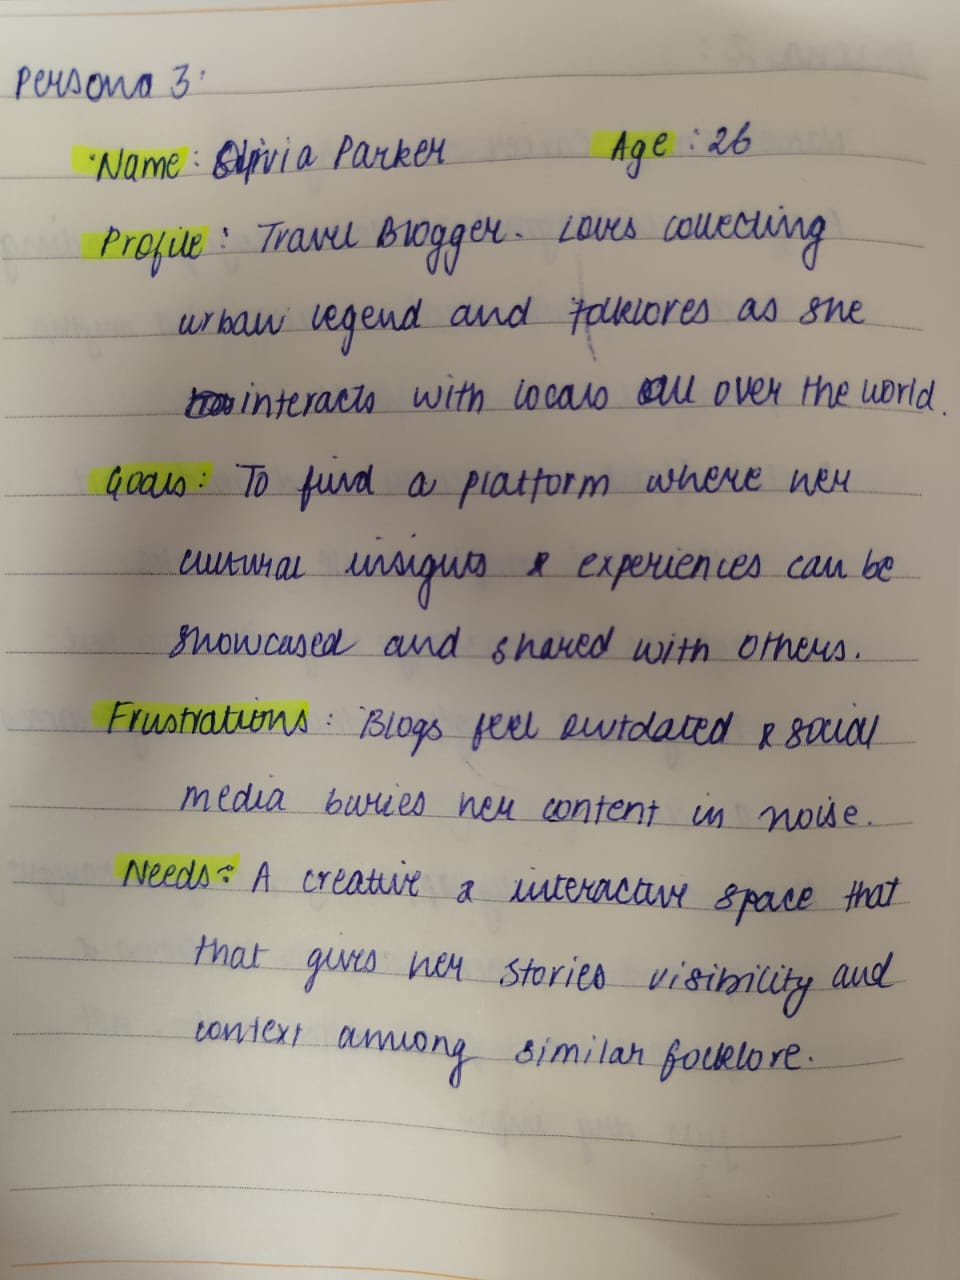 Persona 3:
Name: Olivia Parker Age: 26
Profile: Travel Blogger. Loves collecting
urban legend and folklores as she
interacts with locals all over the world.
Goals: To find a platform where her
cultural insights & experiences can be
showcased and shared with others.
Frustrations: Blogs feel outdated & social
media buries her content in noise.
Needs: A creative & interactive space that
that gives her stories visibility and
context among similar folklore.